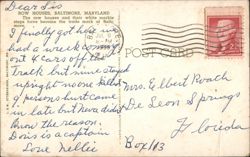 Dear Sis
ROW HOUSES, BALTIMORE, MARYLAND
The row houses and their white marble
steps have become the trade mark of Baltimore.
I finally got here we
had a wreck coming
out 4 cars off the
track but mine stayed
upright no one killed
9 persons hurt came
in late but Neva didn't
know the reason.
Doris is a captain
Love Nellie
POST CARD
Mrs. Elbert Roach
De Leon Springs
Florida
Box 113